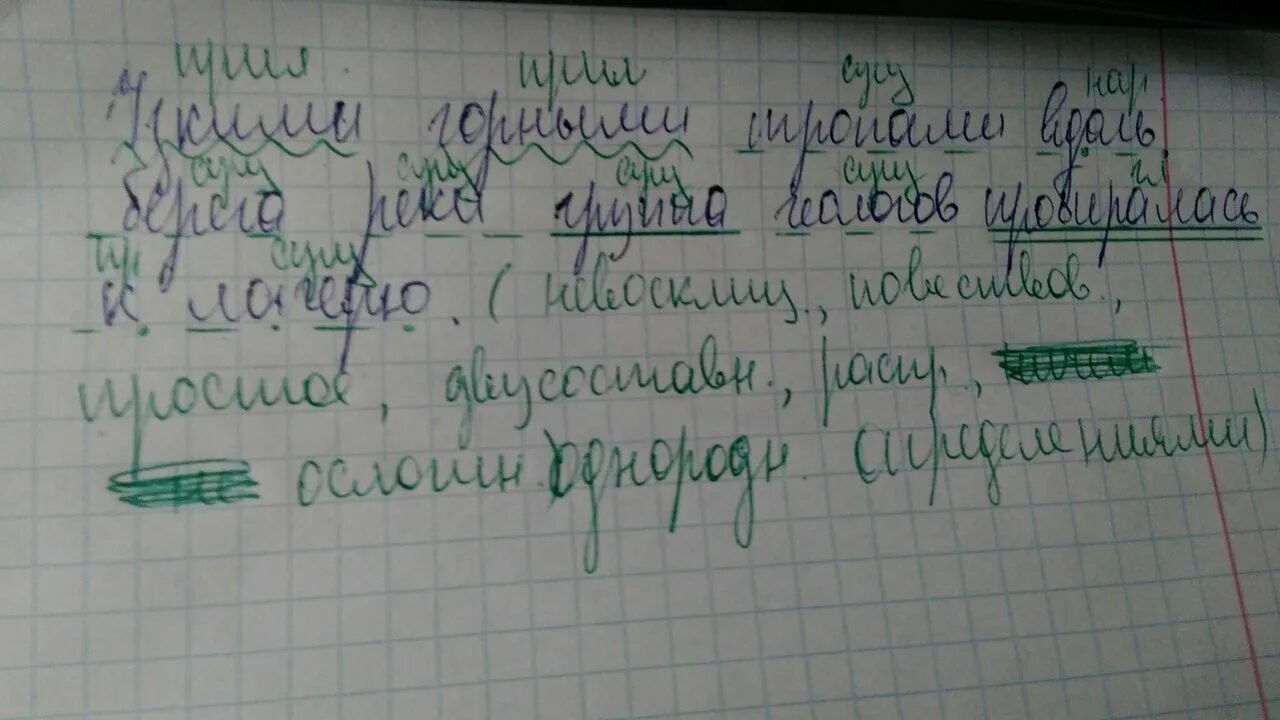 прил. прил сущ нар.
Узкими горными тропами вдоль
сущ сущ сущ сущ гл
берега реки группа геологов пробиралась
пр. сущ
к лагерю. (невосклиц., повествов.,
простое, двусоставн., распр.,
осложн. однородн. определениями)